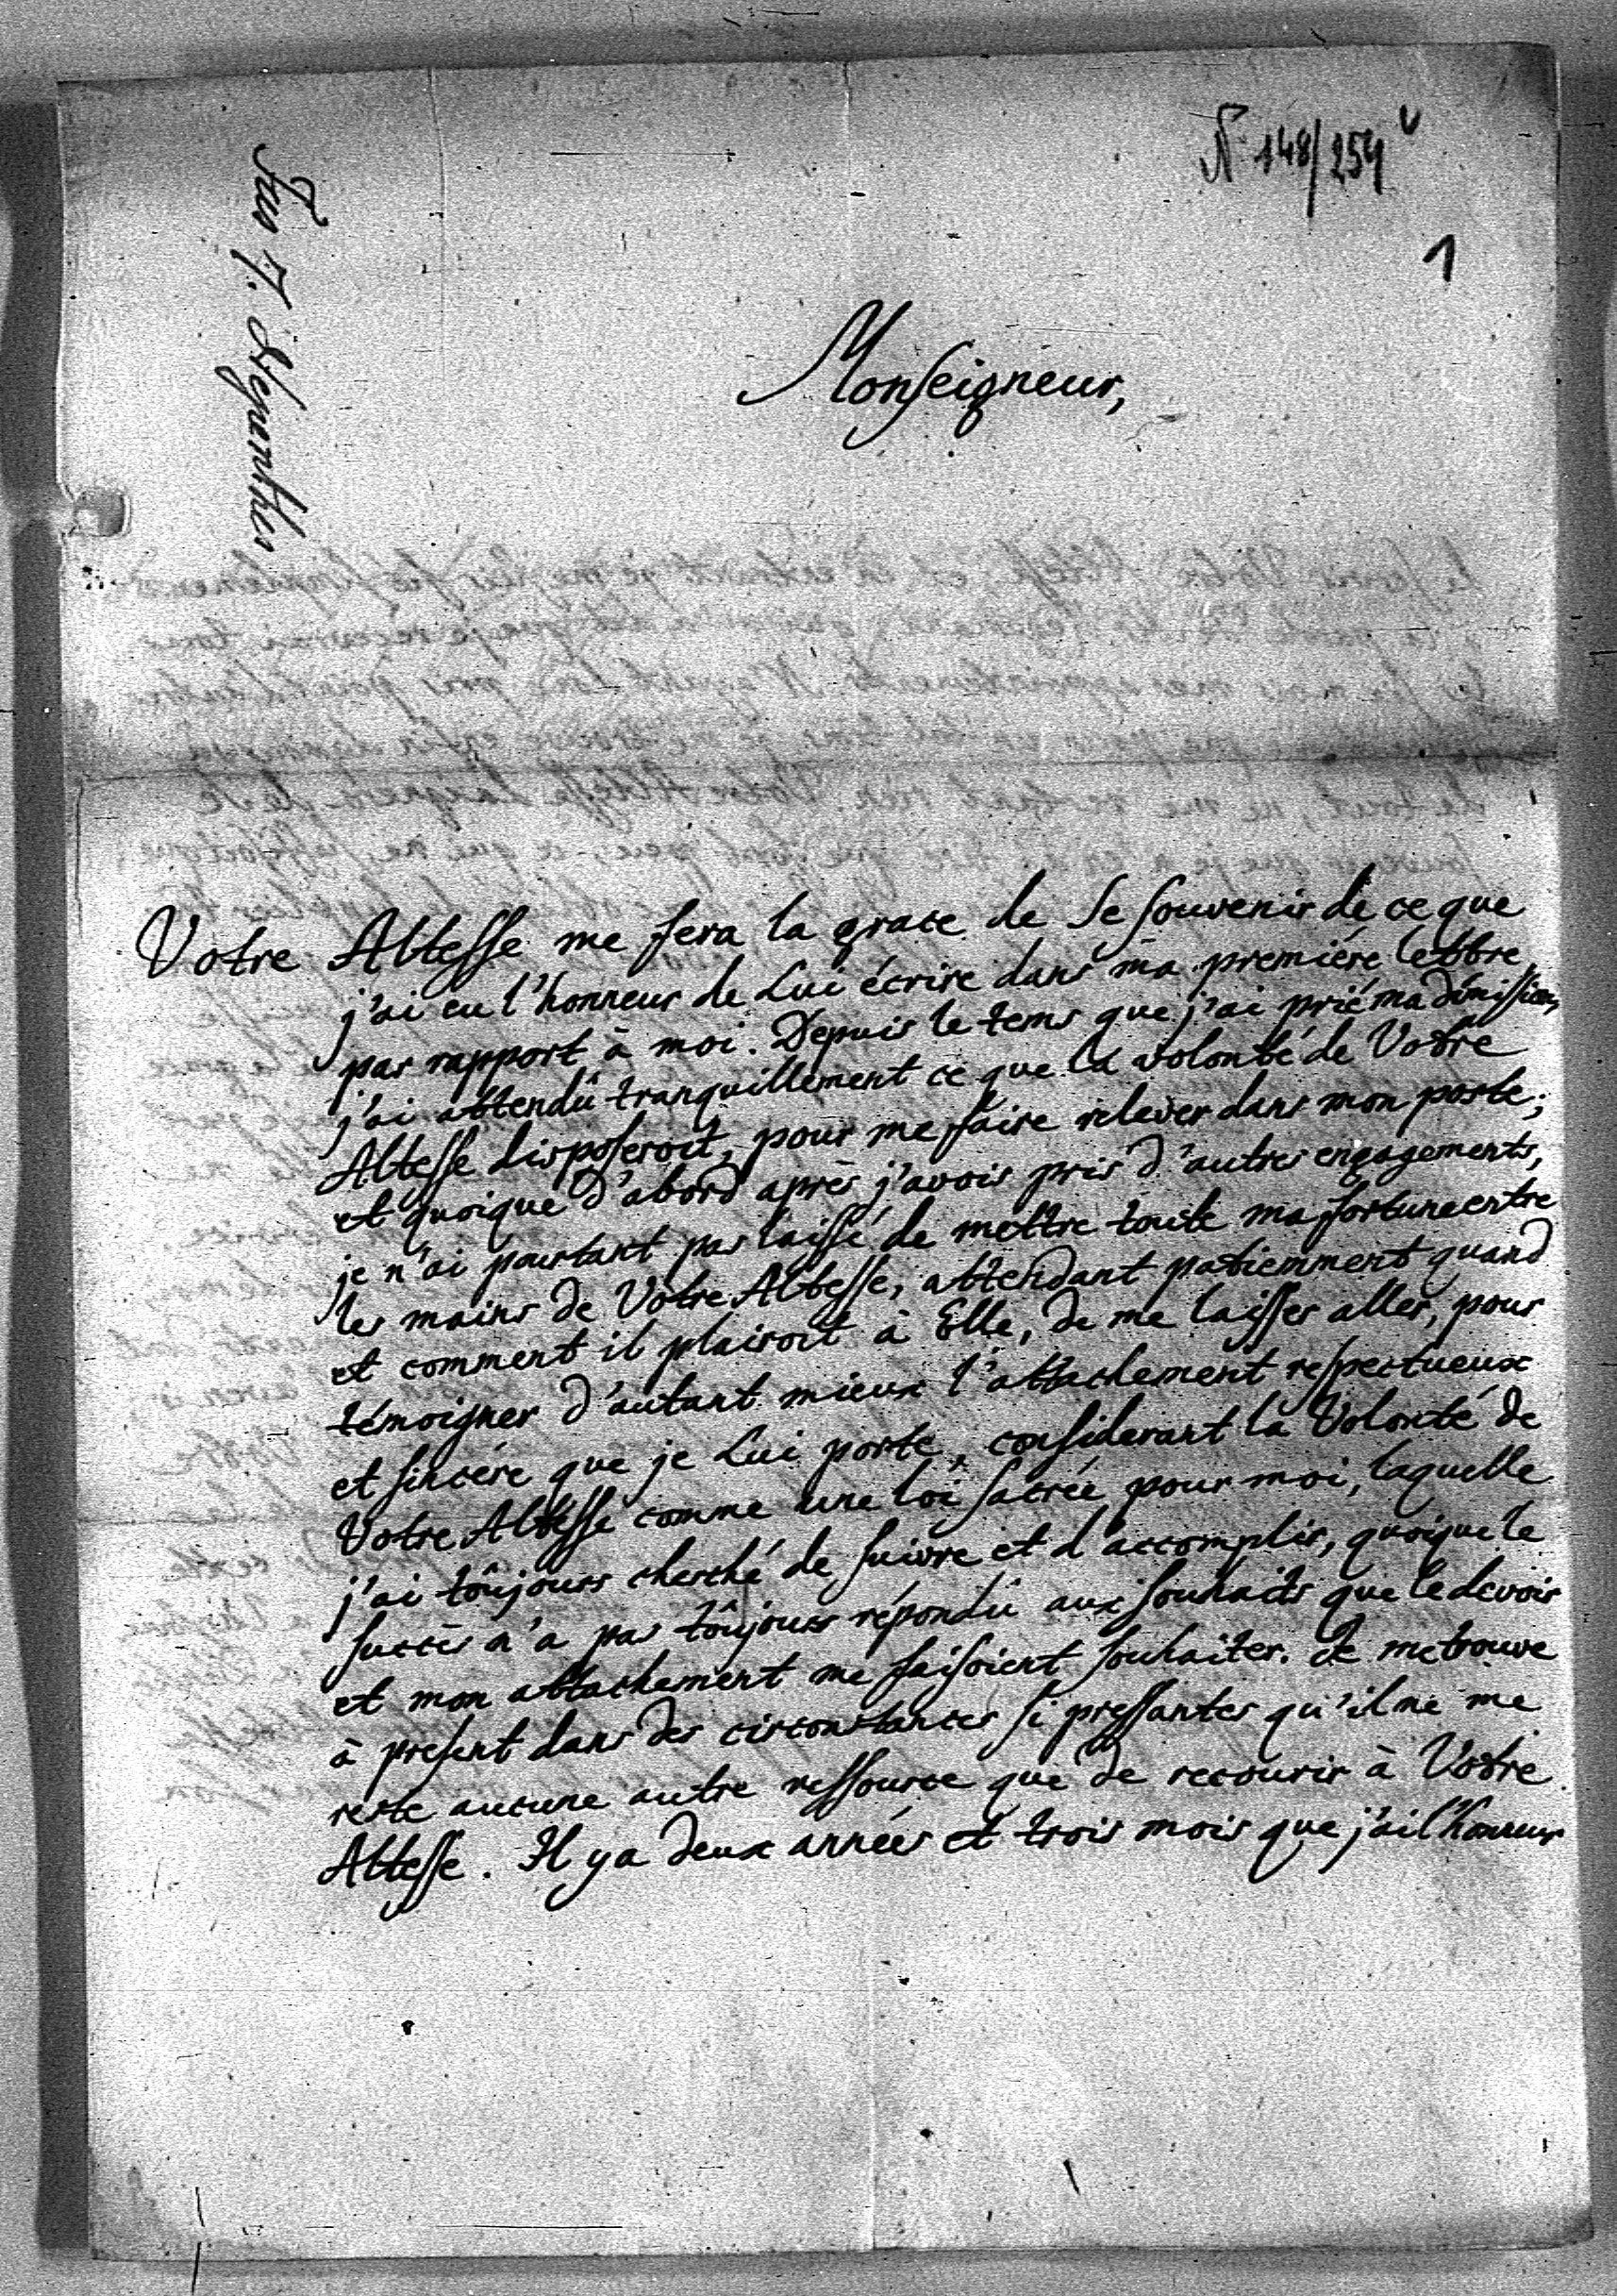 N. 148/254 v
1
Monseigneur,
Votre Altesse me fera la grace de Se souvenir de ce que
j'ai eu l'honneur de Lui écrire dans ma première lettre
par rapport à moi. Depuis le tems que j'ai prié ma dimission,
j'ai attendû tranquillement ce que la volonté de Votre
Altesse disposeroit, pour me faire relever dans mon poste;
et quoique d'abord après j'avois pris d'autres engagements,
je n'ai pourtant pas laissé de mettre toute ma fortune entre
les mains de Votre Altesse, attendant patiemment quand
et comment il plairoit à Elle, de me laisser aller, pour
témoigner d'autant mieux l'attachement respectueux
et sincére que je Lui porte, considerant la Volonté de
Votre Altesse comme une loi sacrée pour moi, laquelle
j'ai toûjours cherché de suivre et d'accomplir, quoique le
succès n'a pas toûjours répondû aux souhaits que le devoir
et mon attachement me faisoient souhaiter. Je me trouve
à present dans des circonstances si pressantes qu'il ne me
reste aucune autre ressource que de recourir à Votre
Altesse. Il y a deux années et trois mois que j'ai l'honneur